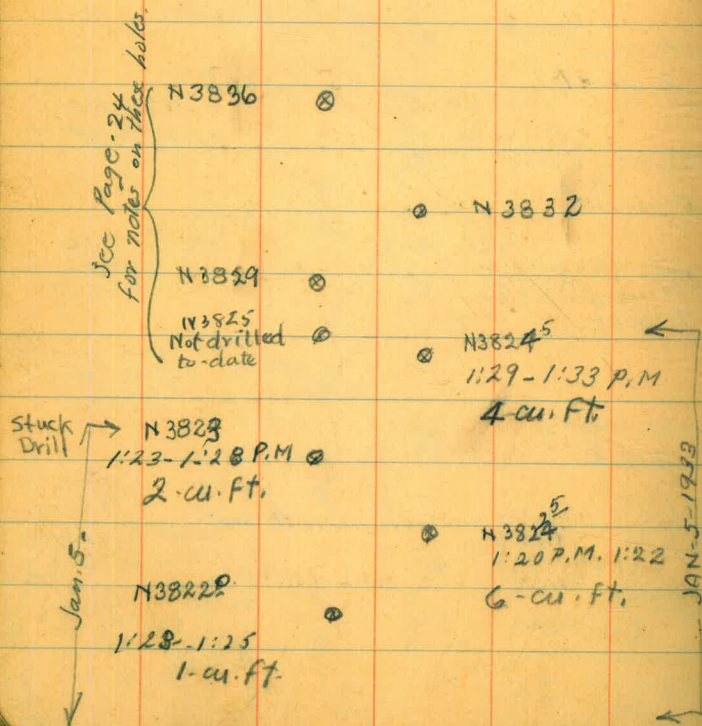 See Page-24
for notes on these holes.
N3836
N 3832
N3829
N3825
Not drilled
to-date
N3824 5
1:29-1:33 P.M
4-cu.ft.
Stuck
Drill
N3823
1:23-1:28 P.M
2-cu.ft.
1:20 P.M. 1:22
6-cu.ft.
Jan.5-
1-cu.ft.
JAN-5-1933